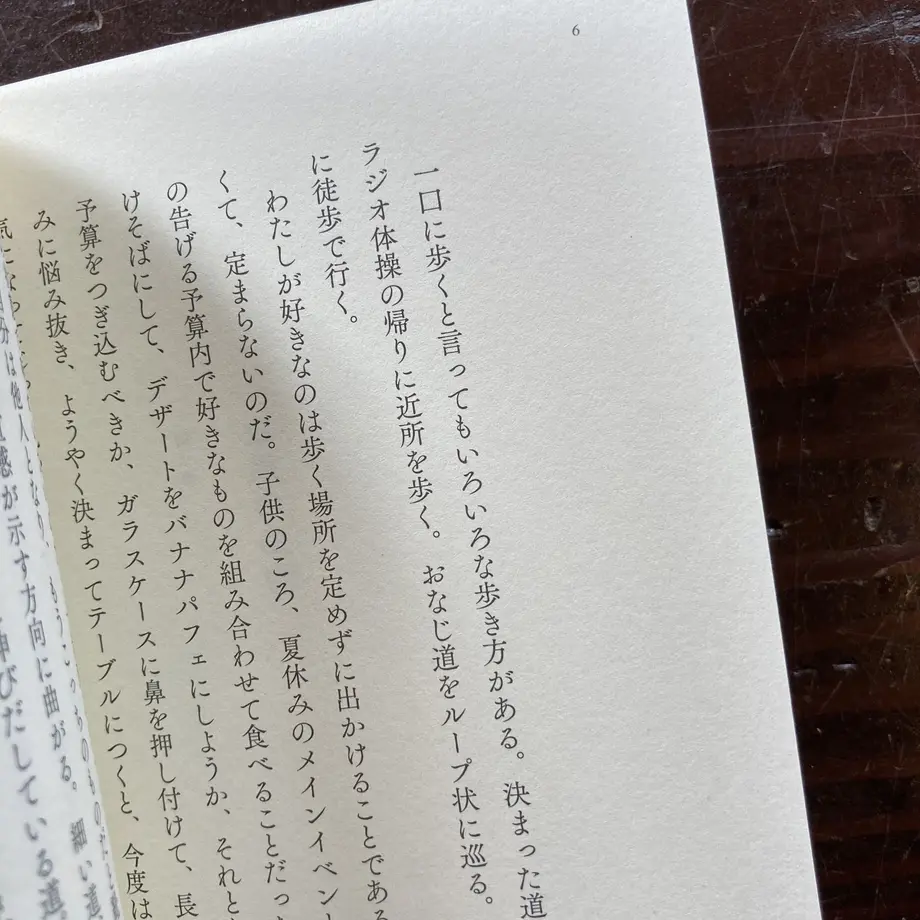 6
一口に歩くと言ってもいろいろな歩き方がある。決まった道
ラジオ体操の帰りに近所を歩く。おなじ道をループ状に巡る。
に徒歩で行く。
わたしが好きなのは歩く場所を定めずに出かけることである
くて、定まらないのだ。子供のころ、夏休みのメインイベン
の告げる予算内で好きなものを組み合わせて食べることだっ
けそばにして、デザートをバナナパフェにしようか、それと
予算をつぎ込むべきか、ガラスケースに鼻を押し付けて、長
みに悩み抜き、ようやく決まってテーブルにつくと、今度は
感が示す方向に曲がる。細い道
伸びだしている道。